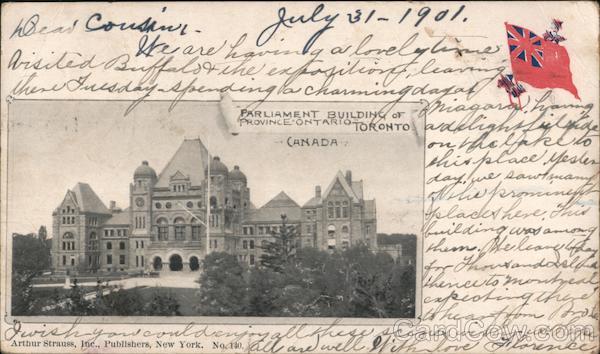 July 31 - 1901.
Dear Cousin,
We are having a lovely time
visited Buffalo & the exposition, leaving
there Tuesday - spending a charming day at
Niagara, having
a delightful ride
on the lake to
this place yester
day. we saw many
of the prominent
places here. This
building was among
them. We leave to-day
for Thousand Isl
thence to Montreal
expecting there
to hear from
I wish you could enjoy all these
all are well With love
PARLIAMENT BUILDING OF
PROVINCE-ONTARIO-
TORONTO
CANADA
Arthur Strauss, Inc., Publishers, New York. No. 140.
CardCow.com